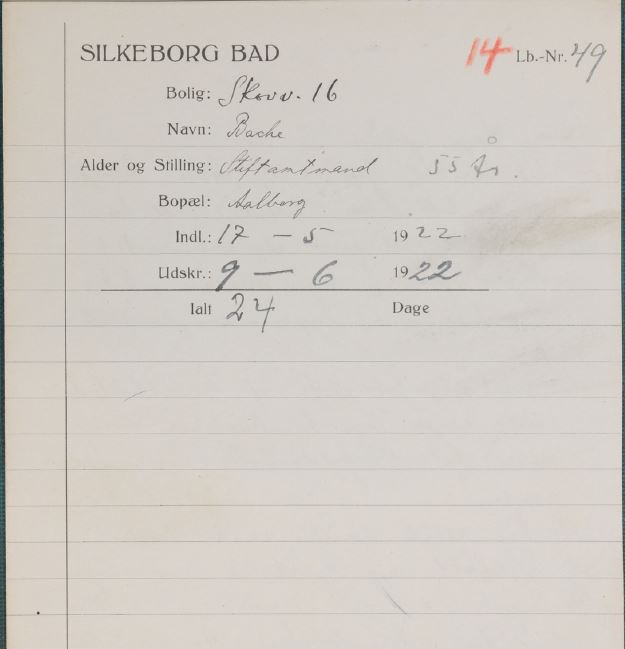 SILKEBORG BAD 14 Lb.-Nr. 49
Bolig: Skovv. 16
Navn: Bache
Alder og Stilling: Stiftamtmand 55 År.
Bopæl: Aalborg
Indl.: 17 — 5 1922
Udskr.: 9 — 6 1922
Ialt 24 Dage